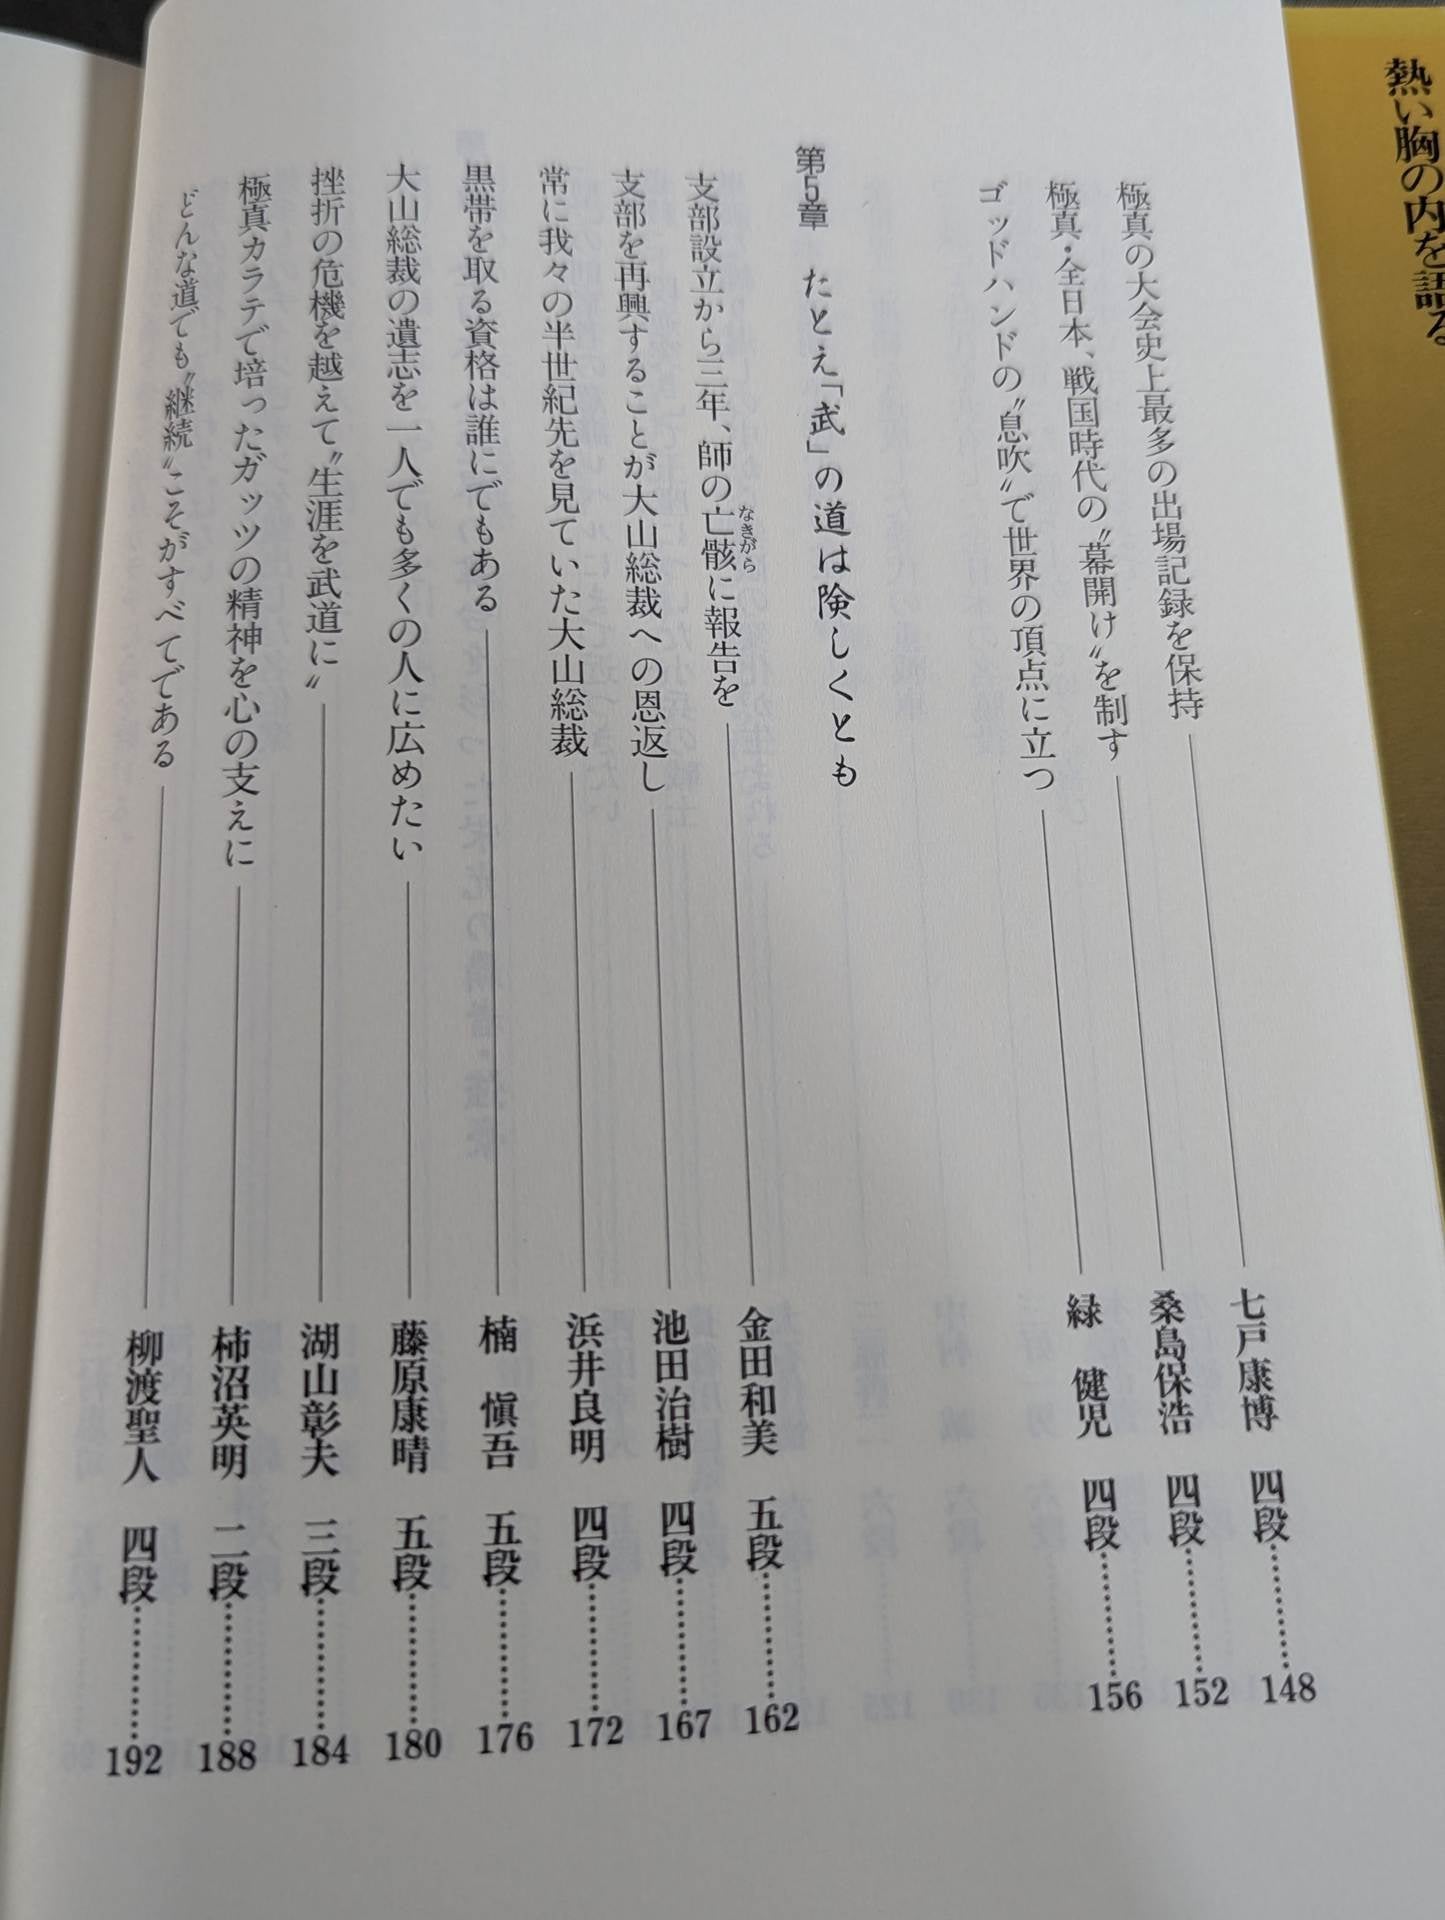 熱い胸の内を語る
極真の大会史上最多の出場記録を保持 七戸康博 四段…………148
極真・全日本、戦国時代の〝幕開け〟を制す 桑島保浩 四段…………152
ゴッドハンドの〝息吹〟で世界の頂点に立つ 緑 健児 四段…………156
第5章 たとえ「武」の道は険しくとも
支部設立から三年、師の亡骸に報告を 金田和美 五段…………162
なきがら
支部を再興することが大山総裁への恩返し 池田治樹 四段…………167
常に我々の半世紀先を見ていた大山総裁 浜井良明 四段…………172
黒帯を取る資格は誰にでもある 楠 愼吾 五段…………176
大山総裁の遺志を一人でも多くの人に広めたい 藤原康晴 五段…………180
挫折の危機を越えて〝生涯を武道に〟 湖山彰夫 三段…………184
極真カラテで培ったガッツの精神を心の支えに 柿沼英明 二段…………188
どんな道でも〝継続〟こそがすべてである 柳渡聖人 四段…………192